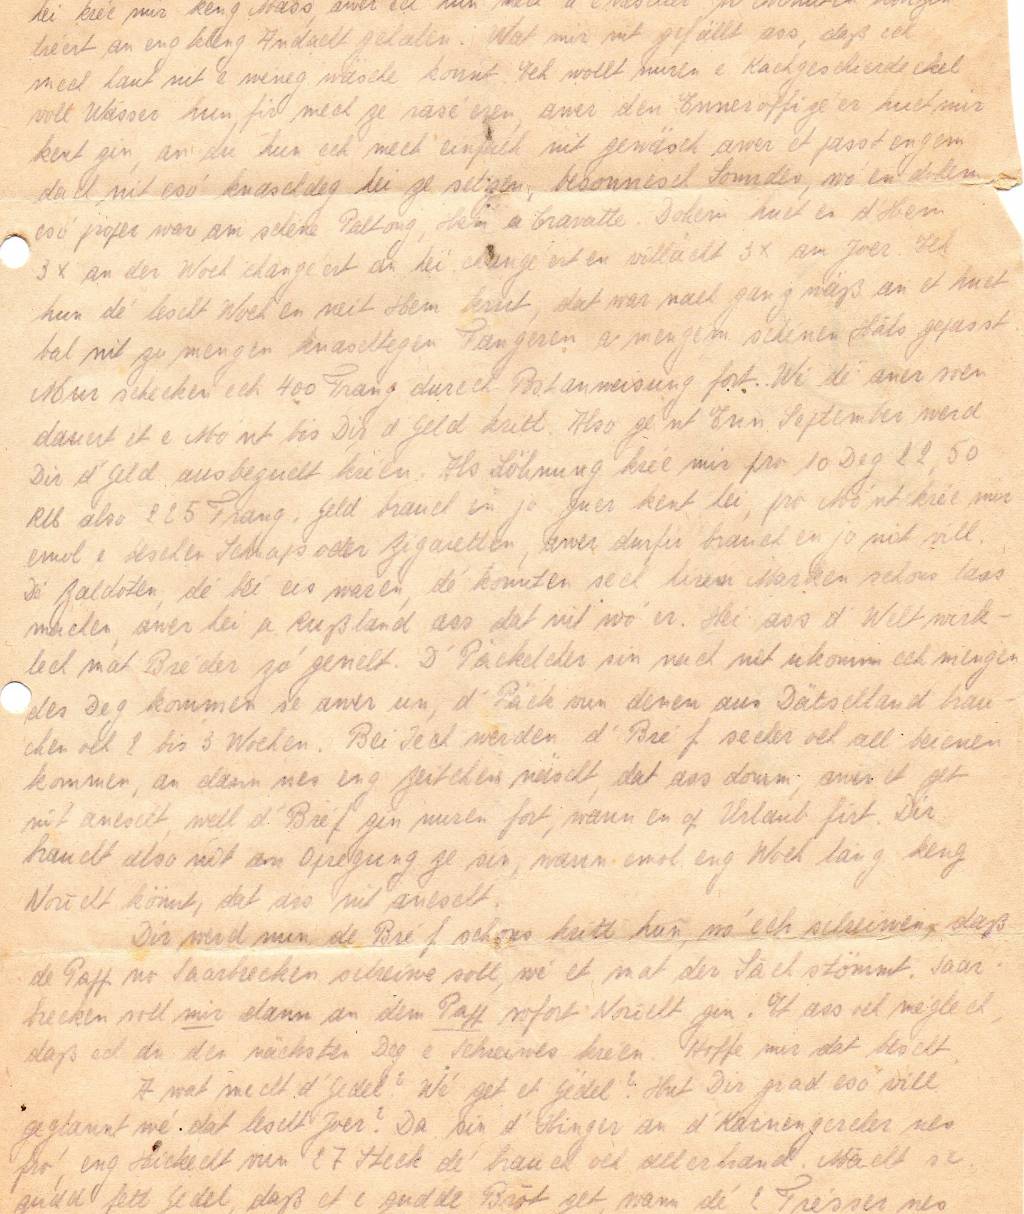 hei kréé mir keng Mass, awer ech hun mech a
héert an eng kleng Andaelt gehalen. Wat mir nit gefällt ass, daß ech
mech haut nit e weneg wäsche konnt. Ech wollt nuren e Kachgeschierdeckel
voll Wässer hun fir mech ze rase'eren, awer den Enneroffize'er huet mir
kent gin, an du hun ech mech einfach nit gewäsch awer et passt engem
dach nit esó knascldeg hei ze setzen, besonnesch Sonndes, wó en doheem
esó proper war am schéne Paltong, Hem a Cravatte. Dohem huet en d'Hem
3x an der Woch changéert an hei changéert en villäicht 3x am Joer. Ech
hun dé lescht Woch en neit Hem kritt, dat war nach gang wäß an et huet
bal nit zu mengen knaschtegen Fangeren a mengem schénen Hals gepasst.
Muer schecken ech 400 Frang durech Postanweisung fort. Wi dé aner soen
dauert et e Mo'nt bis Dir d'Geld kritt. Also ge'nt Enn September werd
Dir d'Geld ausbezuelt kréen. Als Löhnung krée mir pro 10 Deg 22,50
RM also 225 Frang. Geld brauch en jo guer kent hei, pro Mo'nt krée mir
emol e beschen Schnaps oder Zigaretten, awer dorfir brauch en jo nit vill.
Dé Zaldoten, dé bei eis waren, dé konnten sech hirem Marken schons lass
machen, awer hei a Rußland ass dat nit wó er. Hei ass d'Welt wirk-
lech mat Brieder zó genelt. D'Päckelcher sin nach net ukomm ech mengen
des Deg kommen se awer un, d'Päck vun denen aus Dätschland brau-
chen och 2 bis 3 Wochen. Bei Iech werden d'Bréf secher och all beienen
kommen, an dann nes eng Zeitchen näischt, dat ass domm, awer et get
nit anescht, well d'Bréf gin nuren fort, wann en op Urlaub firt. Dir
braucht also nit an Opregung ze sin, wann emol eng Woch lang keng
Norücht kömmt, dat ass nit anescht.
Dir werd nun de Bréf schons kritt hun, wó ech schreiwen, daß
de Paff no Saarbrecken schreiwe soll, wé et mat der Säch stömmt. Saar-
brecken soll mir dann an dem Paff sofort Norücht gin. Et ass och méglech,
daß ech an den nächsten Deg e Schreiwes kréen. Hoffe mir dat bescht.
A wat mecht d'Gédel? Wé get et Gédel? Hut Dir grad eso vill
geplannt wé dat lescht Joer? Da sin d'Hinger an d'Karnengercher nes
fró, eng Héckecht vun 27 Steck dé brauch och allerhand. Mäecht se
gudd fett Gédel, daß et e gudde Brót get, wann dé 2 Frésser nes